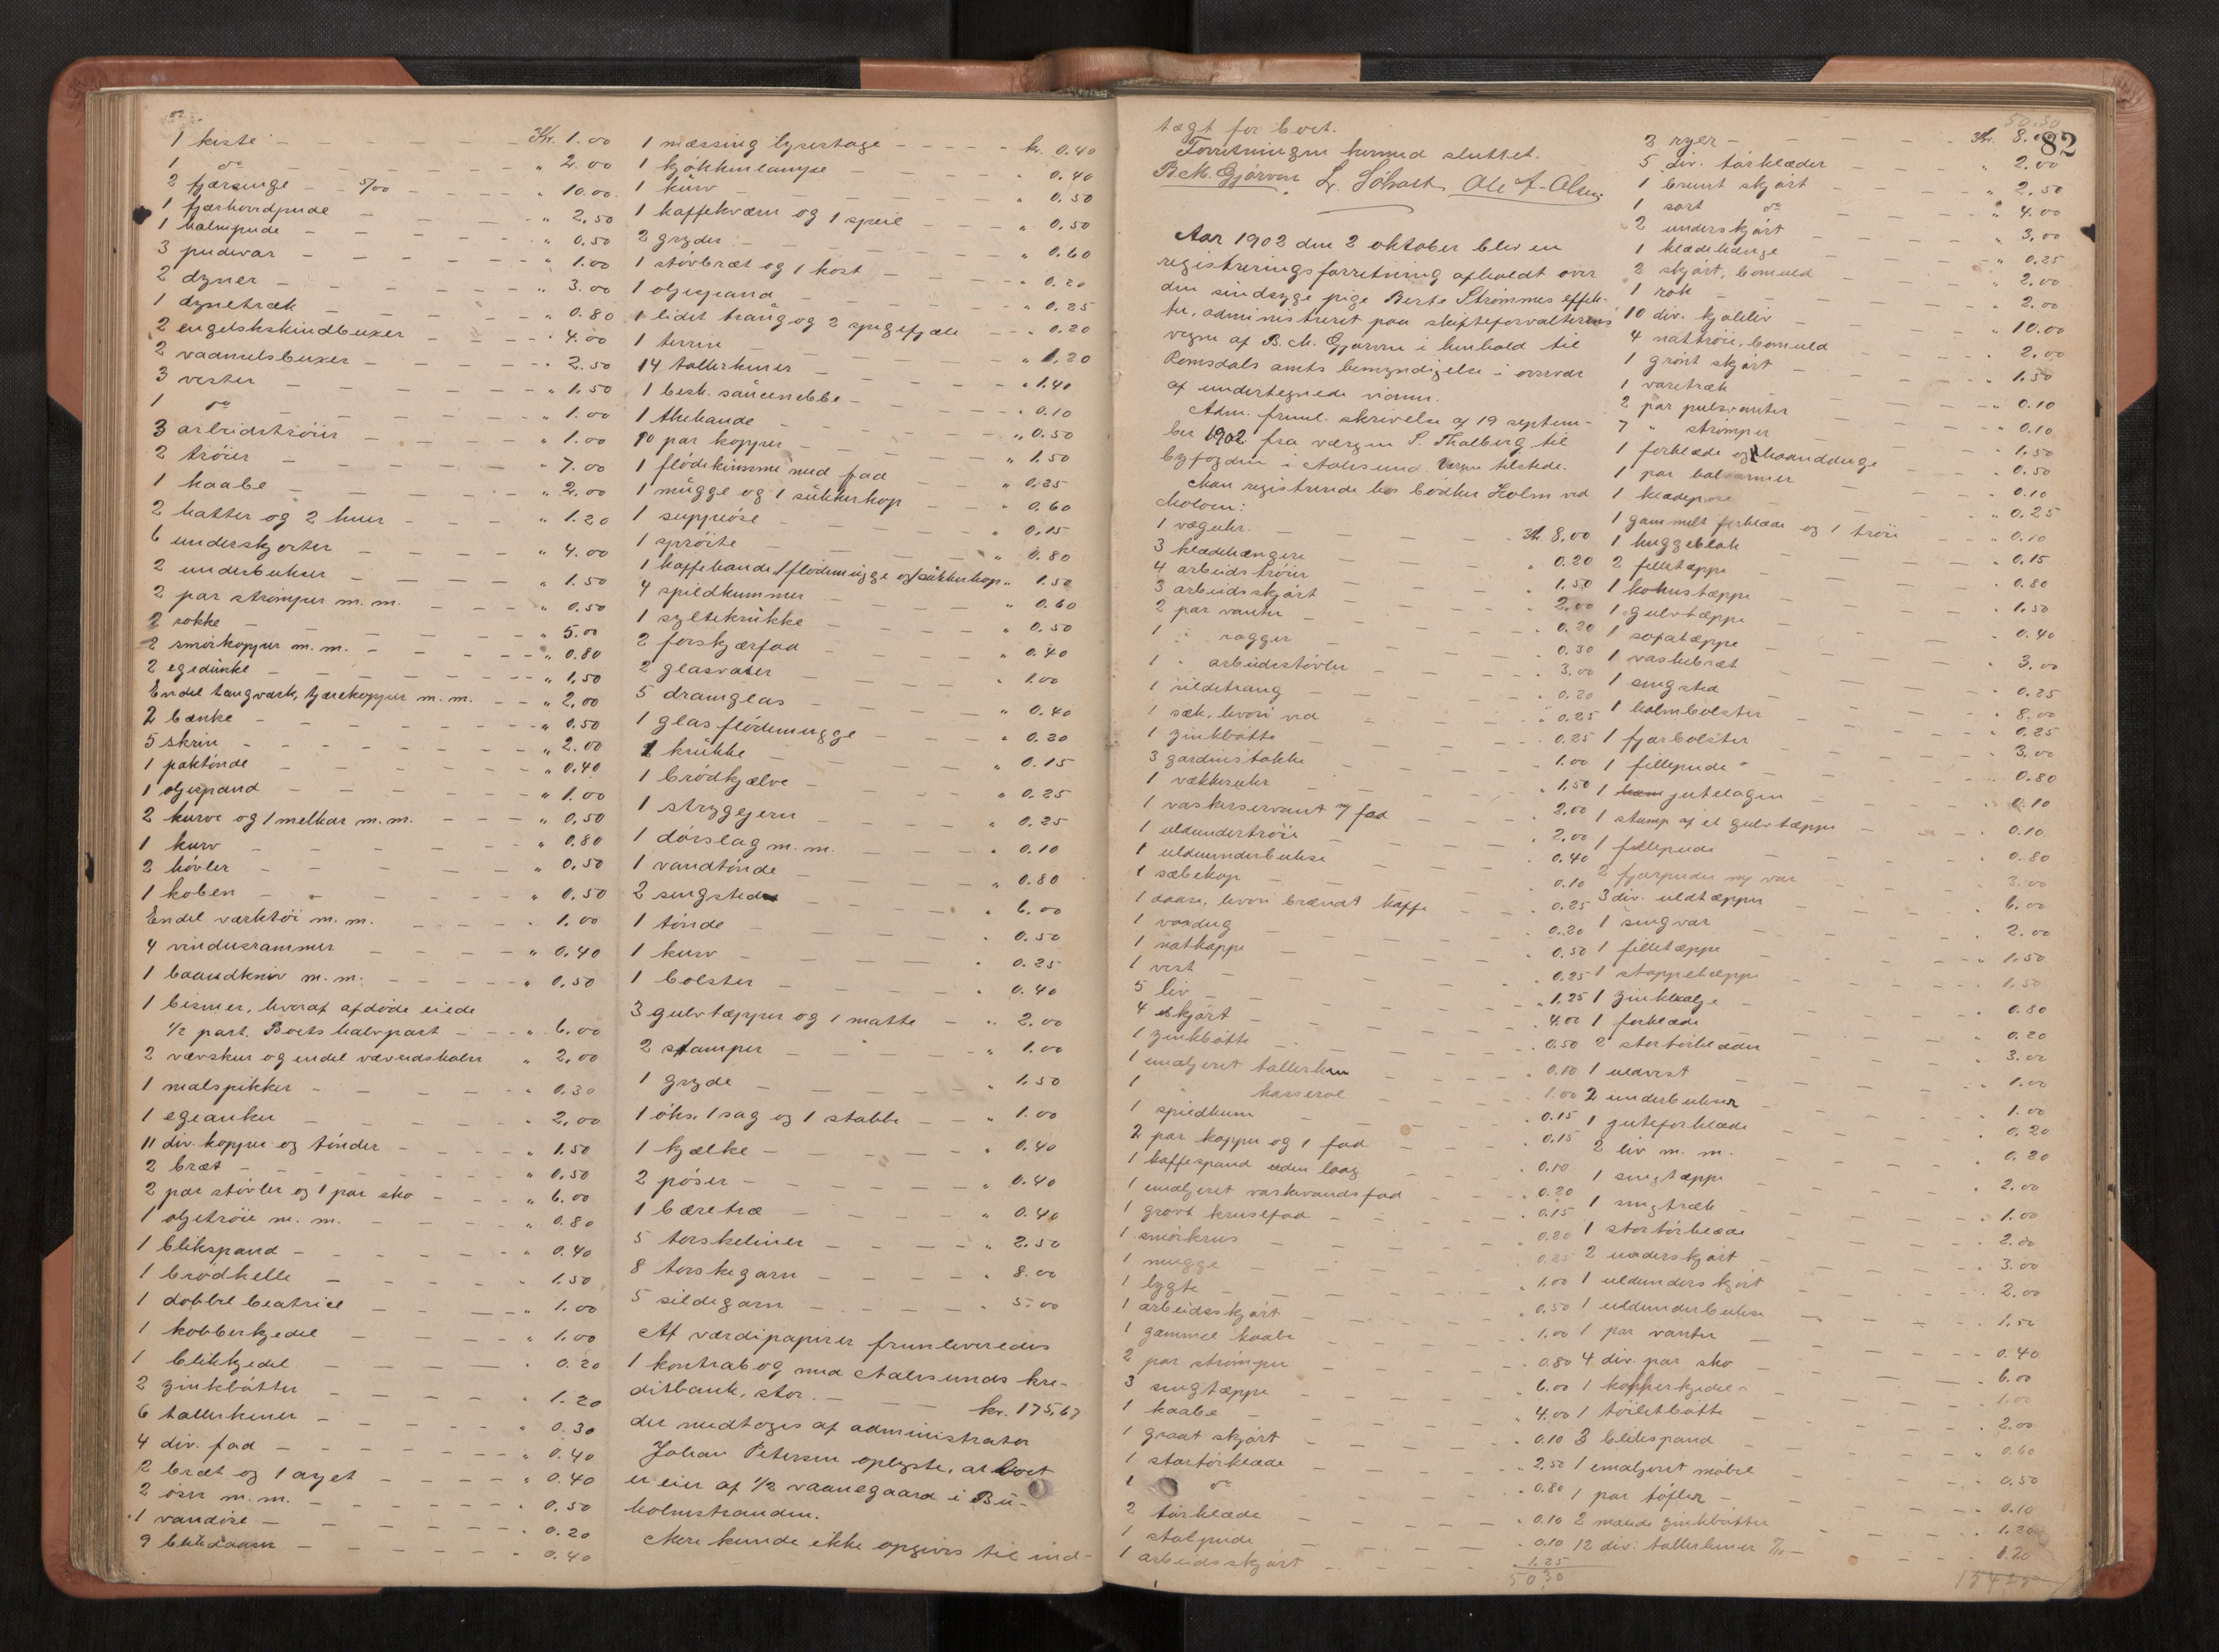 1 kiste - - - - - Kr. 1.00
1 do - - - - " 2.00
2 fjærsenge - 5/00 - - " 10.00
1 fjærhovedpude - - - " 2.50
1 halmpude - - - - " 0.50
3 pudevar - - - - " 1.00
2 dyner - - - - " 3.00
1 dynetræk - - - - " 0.80
2 engelskskindbuxer - - - " 4.00
2 vadmelsbuxer - - - " 2.50
3 vester - - - - " 1.50
1 do - - - - " 1.00
3 arbeidstrøier - - - " 1.00
2 trøier - - - - " 7.00
1 kaabe - - - - " 2.00
2 hatter og 2 huer - - - " 1.20
6 underskjorter - - - " 4.00
2 underbukser - - - " 1.50
2 par strømper m. m. - - - " 0.50
2 rokke - - - - " 5.00
2 smørkopper m. m. - - - " 0.80
2 egedunke - - - - " 1.50
Endel taugværk, tjærekopper m. m. - - " 2.00
2 bænke - - - - " 0.50
5 skrin - - - - " 2.00
1 paktønde - - - - " 0.40
1 oljespand - - - - " 1.00
2 kurve og 1 melkar m. m. - - - " 0.50
1 kurv - - - - " 0.80
2 høvler - - - - " 0.50
1 koben - - - - " 0.50
Endel værktøi m. m. - - - " 1.00
4 vinduesrammer - - - " 0.40
1 baandkniv m. m. - - - " 0.50
1 bismer, hvoraf afdøde eiede
1/2 part. Boets halvpart - - " 6.00
2 vævskeer og endel væveredskaber " 2.00
1 malspikker - - - " 0.30
1 egeanker - - - " 2.00
11 div. kopper og tønder - - " 1.50
2 bræt - - - - " 0.50
2 par støvler og 1 par sko - - " 6.00
1 oljetrøie m. m. - - - " 0.80
1 blikspand - - - - " 0.40
1 brødhelle - - - - " 1.50
1 dobbel beatrice - - - " 1.00
1 kobberkjedel - - - " 1.00
1 blikkjedel - - - " 0.20
2 zinkbøtter - - - " 1.20
6 tallerkener - - - " 0.30
4 div. fad - - - - " 0.40
2 bræt og 1 aget - - - " 0.40
2 øser m. m. - - - " 0.50
1 vandøse - - - - " 0.20
9 blikdaaser - - - " 0.40
1 messing lysestage - - - - kr. 0.40
1 kjøkkenlampe - - - " 0.40
1 kurv - - - - " 0.50
1 kaffekværn og 1 speil - - " 0.50
2 gryder - - - - " 0.60
1 støvbræt og 1 kost - - - " 0.20
1 oljespand - - - - " 0.25
1 lidet traug og 2 spegefjæle - - " 0.20
1 terrin - - - - " 1.20
14 tallerkener - - - " 1.40
1 besk. sausenebbe - - - " 0.10
1 thekande - - - - " 0.50
10 par kopper - - - " 1.50
1 flødekumme med fad - - " 0.25
1 mugge og 1 sukkerkop - - " 0.60
1 suppeøse - - - - " 0.15
1 sprøite - - - - " 0.80
1 kaffekande 1 flødemugge og sukkerkop " 1.50
4 spildkummer - - - " 0.60
1 syltekrukke - - - " 0.50
2 forskjærfad - - - " 0.40
2 glasvaser - - - " 1.00
5 dramglas - - - " 0.40
1 glas flødemugge - - - " 0.20
1 krukke - - - - " 0.15
1 brødkjælve - - - " 0.25
1 strygejern - - - " 0.25
1 dørslag m. m. - - - " 0.10
1 vandtønde - - - " 0.80
2 sengsteder - - - " 6.00
1 tønde - - - - " 0.50
1 kurv - - - - " 0.25
1 bolster - - - - " 0.40
3 gulvtæpper og 1 matte - - " 2.00
2 stamper - - - " 1.00
1 gryde - - - - " 1.50
1 øks, 1 sag og 1 stabbe - - " 1.00
1 kjælke - - - - " 0.40
2 pøser - - - - " 0.40
1 bæretræ - - - - " 0.40
5 torskeliner - - - " 2.50
8 torskegarn - - - " 8.00
5 sildegarn - - - " 5.00
Af værdipapirer fremleveredes
1 kontrabog med Aalesunds kre-
ditbank, stor. - - kr. 175,67
der medtoges af administrator
Johan Petersen oplyste, at boet
er eier af 1/2 vaanegaard i Bu-
holmstranden.
Mere kunde ikke opgives til ind-
tægt for boet.
Forretningen hermed sluttet.
B. M. Gjørven L. Solvolt Ole A. Olsen
Aar 1902 den 2 oktober blev en
registreringsforretning afholdt over
den sindsyge pige Berte Strømmes effek-
ter, administreret paa skifteforvalterens
vegne af B. M. Gjørven i henhold til
Romsdals amts bemyndigelse i overvær
af undertegnede vidner.
Adm. freml. skrivelse af 19 septem-
ber 1902 fra værgen P. Thalberg til
byfogden i Aalesund. Værgen tilstede.
Man registrerede hos bødker Holm ved
Moloen:
1 væguhr. - - - - Kr. 8.00
3 klædehængere - - - " 0.20
4 arbeidstrøier - - - " 1.50
3 arbeidsskjørt - - - " 2.00
2 par vanter - - - " 0.20
1 " ragger - - - " 0.30
1 " arbeidsstøvler - - - " 3.00
1 sildetraug - - - " 0.20
1 sæk, hvori ved - - - " 0.25
1 zinkbøtte - - - " 0.25
3 gardinstokke - - - " 1.00
1 vækkeruhr - - - " 1.50
1 vaskeservant m/ fad - - " 2.00
1 uldundertrøie - - - " 2.00
1 uldunderbukse - - - " 0.40
1 sæbekop - - - " 0.10
1 daase, hvori brændt kaffe - - " 0.25
1 voxdug - - - " 0.20
1 natkappe - - - " 0.50
1 vest - - - - " 0.25
5 liv - - - - " 1.25
4 skjørt - - - - " 4.00
1 zinkbøtte - - - " 0.50
1 emaljeret tallerken - - " 0.10
1 " kasserol - - " 1.00
1 spildkum - - - " 0.15
2 par kopper og 1 fad - - " 0.15
1 kaffespand uden laag - - " 0.10
1 emaljeret vaskevandsfad - - " 0.20
1 grovt krusefad - - - " 0.15
1 smørkrus - - - " 0.20
1 mugge - - - - " 0.25
1 lygte - - - - " 1.00
1 arbeidsskjørt - - - " 0.50
1 gammel kaabe - - - " 1.00
2 par strømper - - - " 0.80
3 sengtæppe - - - " 6.00
1 kaabe - - - - " 4.00
1 graat skjørt - - - " 0.10
1 stortørklæde - - - " 2.50
1 do - - - " 0.80
2 tørklæde - - - " 0.10
1 stolpude - - - " 0.10
1 arbeidsskjørt - - - " 1.25
50 30
50.30
82
3 ryer - - - - Kr. 8.
5 div. tørklæder - - - " 2.00
1 brunt skjørt - - - " 2.50
1 sort do - - - " 4.00
2 underskjørt - - - " 3.00
1 klædehænge - - - " 0.25
2 skjørt, bomuld - - - " 2.00
1 rok - - - - " 2.00
10 div. kjoleliv - - - " 10.00
4 nattrøie, bomuld - - - " 2.00
1 grønt skjørt - - - " 1.50
1 varetræk - - - " 0.10
2 par pulsvanter - - - " 0.10
7 " strømper - - - " 1.50
1 forklæde og 1 haandduge - - " 0.50
1 par halvarmer - - - " 0.10
1 klædepose - - - " 0.25
1 gammelt forklæde og 1 trøie - - " 0.10
1 huggeblok - - - " 0.15
2 filletæppe - - - " 0.80
1 kokustæppe - - - " 1.50
1 gulvtæppe - - - " 0.40
1 sofatæppe - - - " 3.00
1 vaskebræt - - - " 0.25
1 sengsted - - - " 8.00
1 halmbolster - - - " 0.25
1 fjærbolster - - - " 3.00
1 fillepude - - - " 0.80
1 jutelagen - - - " 0.10
1 stump af et gulvtæppe - - " 0.10
1 fillepude - - - " 0.80
2 fjærpuder m/ var - - - " 3.00
3 div. uldtæpper - - - " 6.00
1 sengvar - - - " 2.00
1 filletæppe - - - " 1.50
1 stoppetæppe - - - " 1.50
1 zinkbalje - - - " 0.80
1 forklæde - - - " 0.20
2 stortørklæder - - - " 3.00
1 uldvest - - - " 1.00
2 underbukser - - - " 1.00
1 juteforklæde - - - " 0.20
2 liv m. m. - - - " 0.20
1 sengtæppe - - - " 2.00
1 sengtræk - - - " 1.00
1 stortørklæde - - - " 2.00
2 underskjørt - - - " 3.00
1 uldunderskjørt - - - " 2.00
1 uldunderbukse - - - " 1.50
1 par vanter - - - " 0.40
4 div. par sko - - - " 6.00
1 kopperkjedel - - - " 1.00
1 toiletbøtte - - - " 2.00
3 blikspand - - - " 0.60
1 emaljeret møbel - - - " 0.50
1 par tøfler - - - " 0.10
2 malede zinkbøtter - - - " 1.20
12 div. tallerkener - - - " 1.20